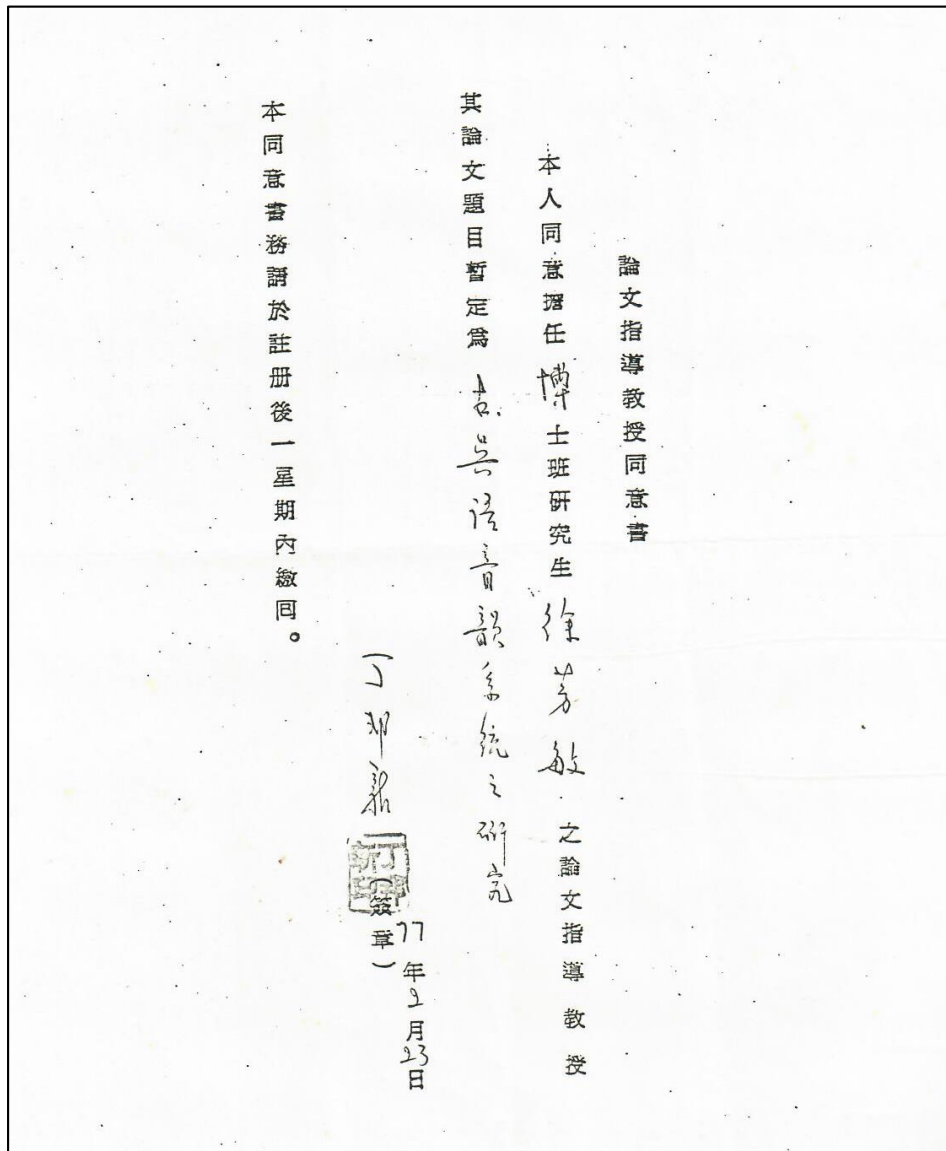 論文指導教授同意書
本人同意擔任博士班研究生徐芳敏之論文指導教授
其論文題目暫定為古吳語音韻系統之研究
丁邦新(簽章)
77年2月23日
本同意書務請於註册後一星期內繳回。